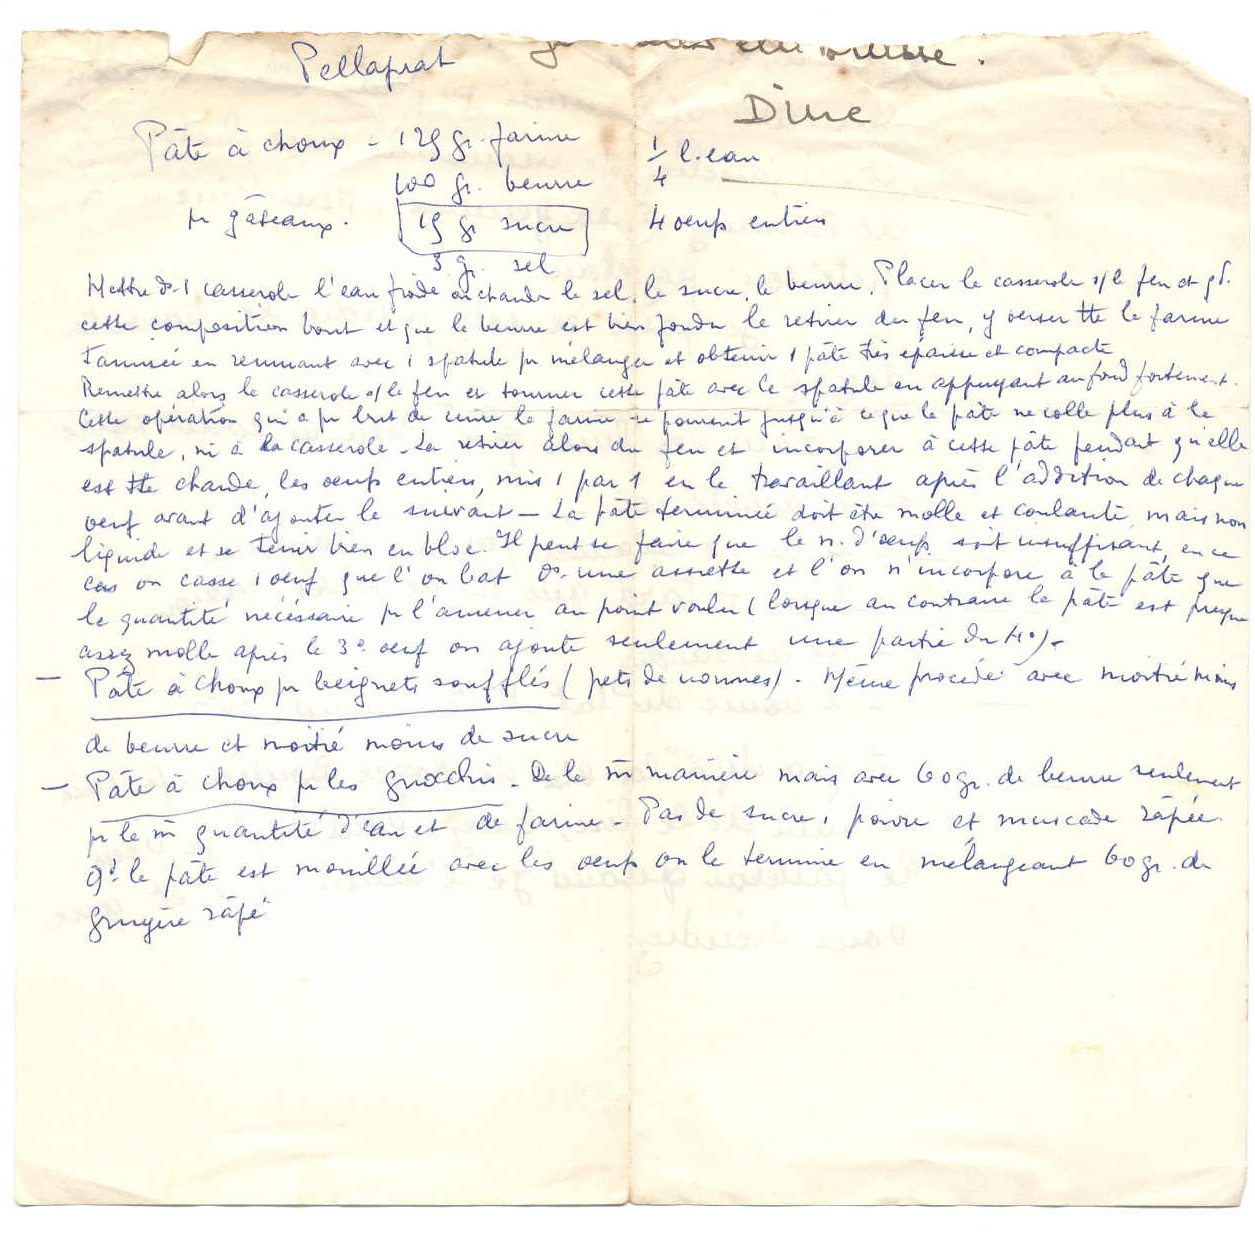 Pellaprat
Dine
Pâte à choux - 125 gr. farine 1/4 l. eau
100 gr. beurre
pr gâteaux. 15 gr sucre 4 oeufs entiers
3 gr. sel
Mettre ds 1 casserole l'eau froide ou chaude le sel, le sucre, le beurre. Placer la casserole s/ le feu et qd.
cette composition bout et que le beurre est bien fondu le retirer du feu, y verser tte la farine
tamisée en remuant avec 1 spatule pr mélanger et obtenir 1 pâte très épaisse et compacte
Remettre alors la casserole s/ le feu et tourner cette pâte avec la spatule en appuyant au fond fortement.
Cette opération qui a pr but de cuire la farine se poursuit jusqu'à ce que la pâte ne colle plus à la
spatule, ni à la casserole - La retirer alors du feu et incorporer à cette pâte pendant qu'elle
est tte chaude, les oeufs entiers, mis 1 par 1 en la travaillant après l'addition de chaque
oeuf avant d'ajouter le suivant - La pâte terminée doit être molle et coulante, mais non
liquide et se tenir bien en bloc. Il peut se faire que le n. d'oeufs soit insuffisant, en ce
cas on casse 1 oeuf que l'on bat ds une assiette et l'on n'incorpore à la pâte que
la quantité nécéssaire pr l'amener au point voulu (lorsque au contraire la pâte est presque
assez molle après le 3e oeuf on ajoute seulement une partie du 4e) -
- Pâte à choux pr beignets soufflés (pets de nonnes) - Même procédé avec moitié moins
de beurre et moitié moins de sucre
- Pâte à choux pr les gnocchis - De la m̄ manière mais avec 60 gr. de beurre seulement
pr la m̄ quantité d'eau et de farine - Pas de sucre, poivre et muscade râpée.
Qd la pâte est mouillée avec les oeufs on la termine en mélangeant 60 gr. de
gruyère râpé